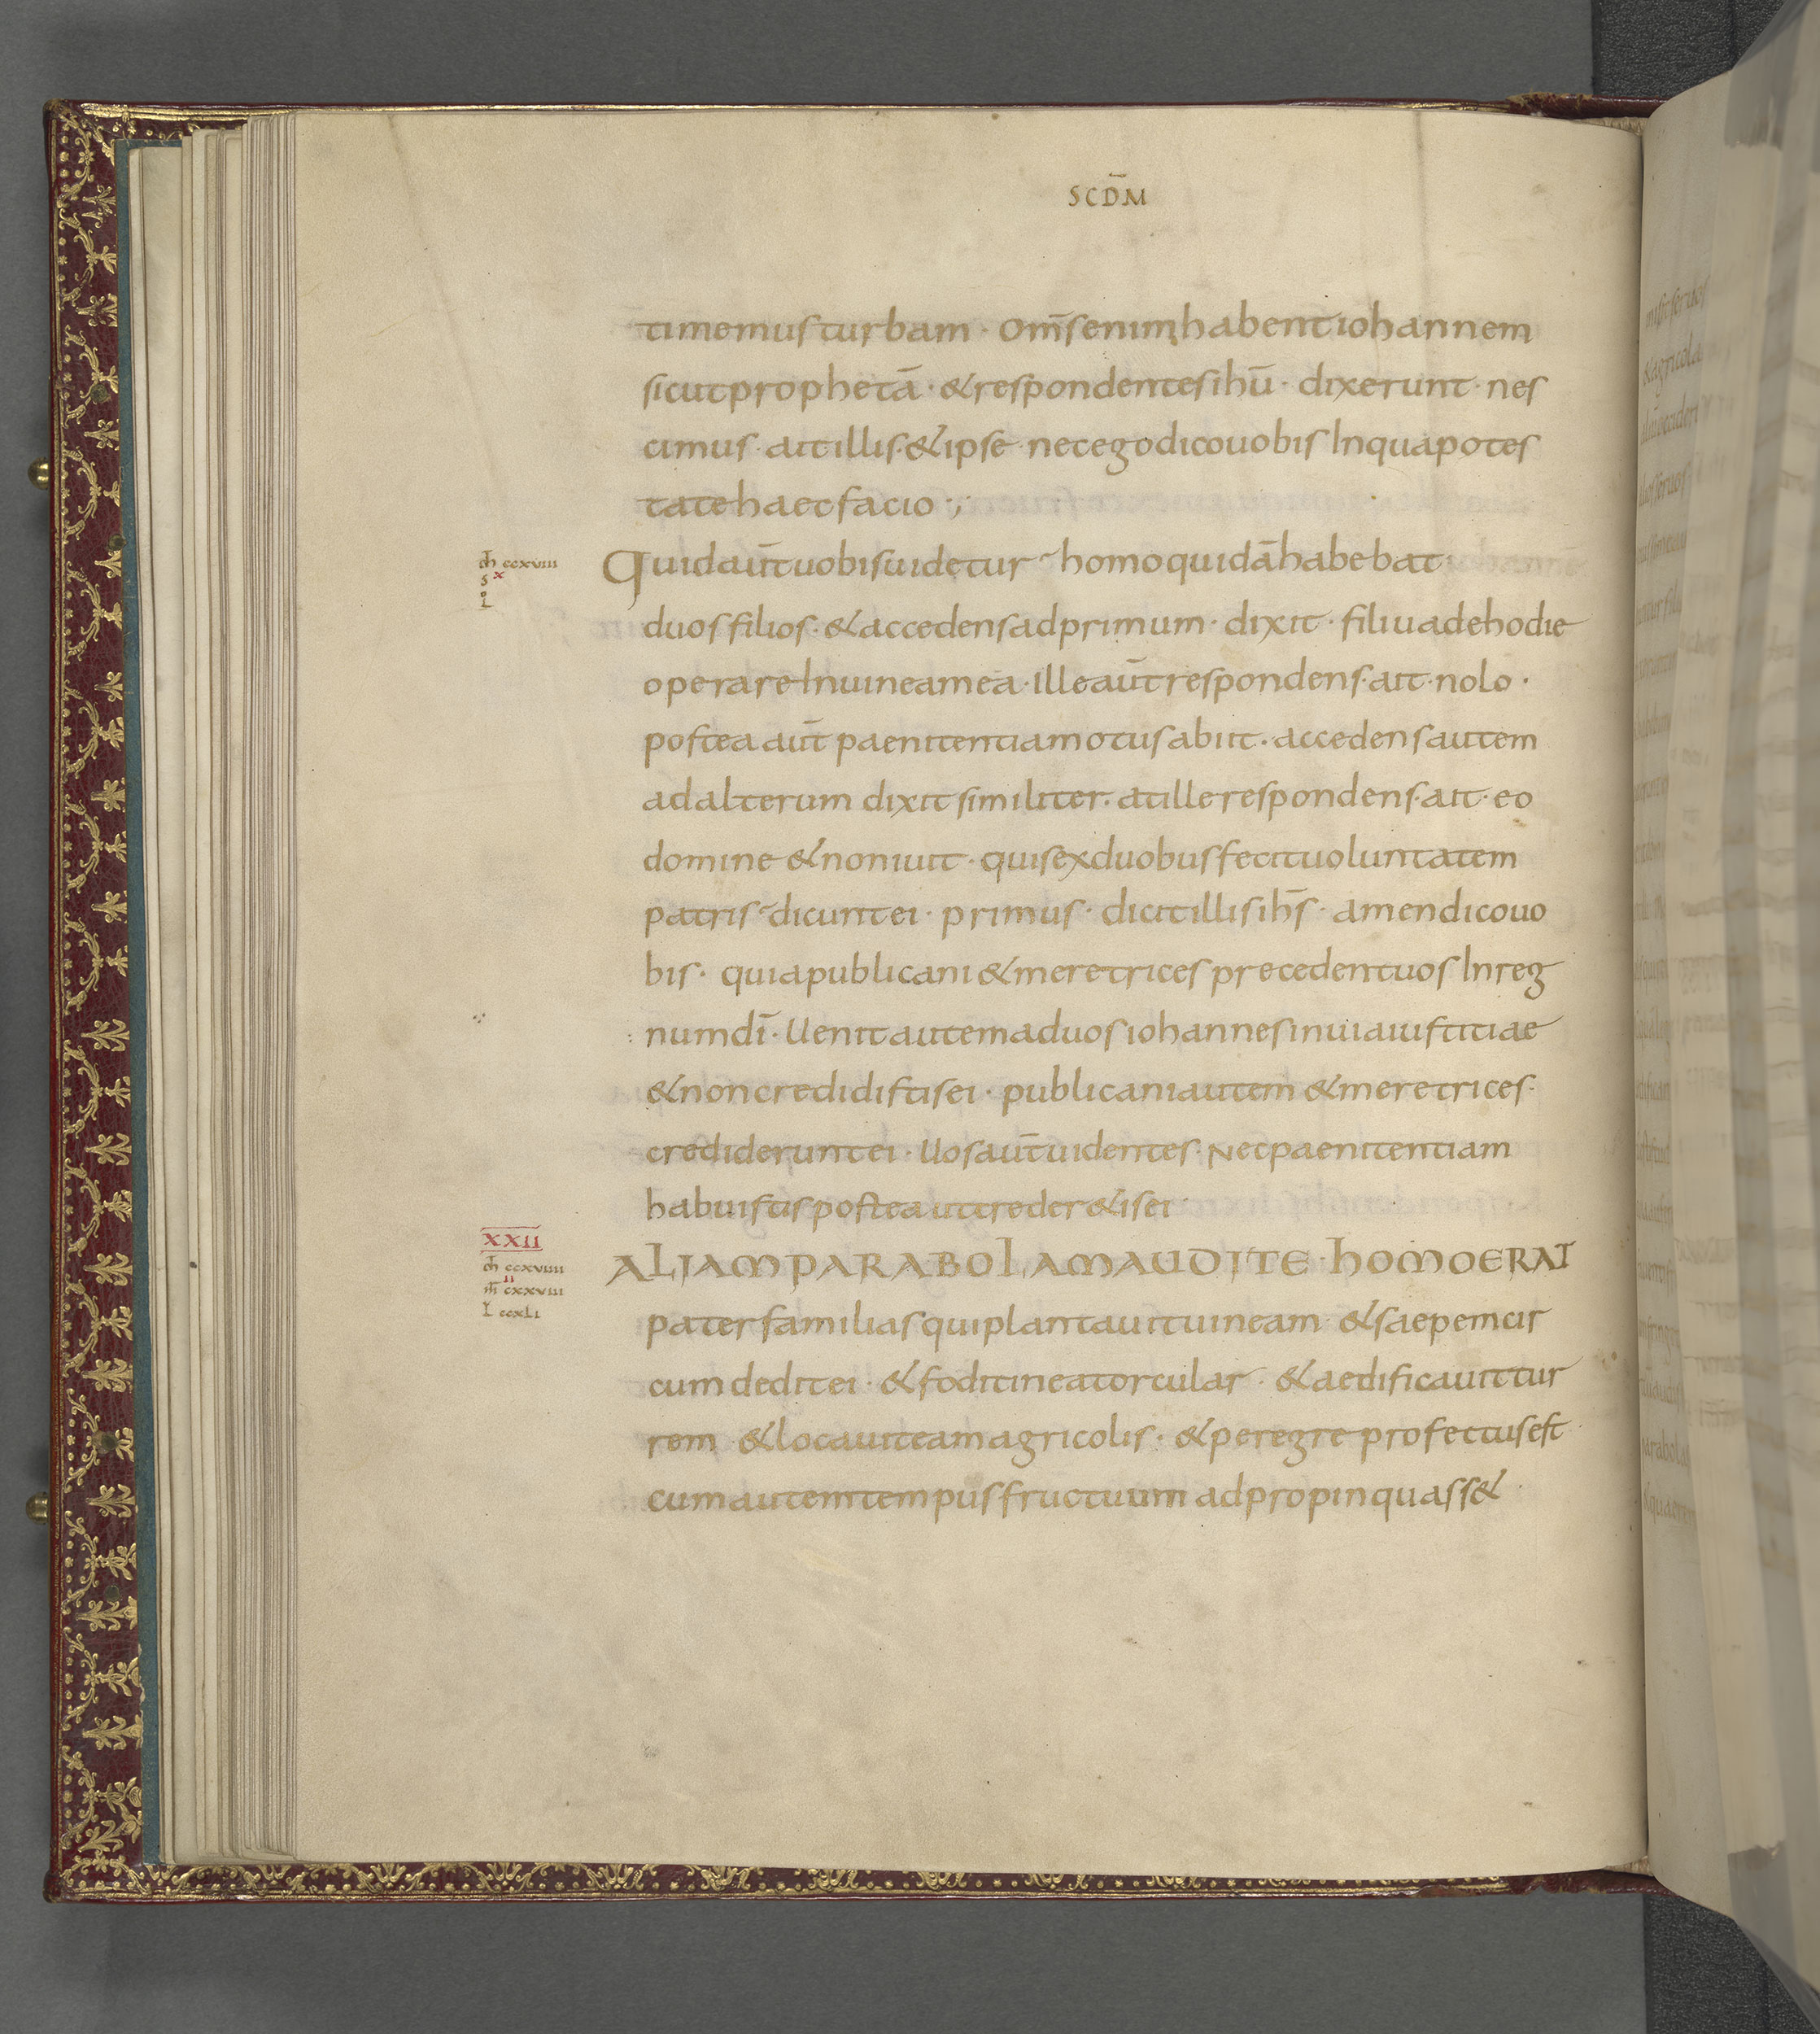 SCD̄M
timemus turbam · om̄s enim habent iohannem
sicut prophetā · & respondentes ihū · dixerunt · nes
cimus · ait illis · & ipse · nec ego dico uobis In qua potes
tate haec facio ·,·
m̄ ccxviii
x
s
o
L
Quid aūt uobis uidetur homo quidā habebat
duos filios · & accedens ad primum · dixit · fili uade hodie
operare In uinea mea · Ille aūt respondens · ait · nolo ·
postea aūt paenitentia motus abiit · accedens autem
ad alterum dixit similiter · at ille respondens · ait · eo
domine & non iuit · quis ex duobus fecit uoluntatem
patris dicunt ei · primus · dicit illis ihs̄ · amen dico uo
bis · quia publicani & meretrices precedent uos In reg
num dī · Uenit autem ad uos iohannes in uia iustitiae
& non credidistis ei · publicani autem & meretrices ·
crediderunt ei · Uos aūt uidentes · Nec paenitentiam
habuistis postea ut creder&is ei
XXII
m̄ ccxviiii
II
m̄ cxxviii
L ccxLi
ALIAM PARABOLAM AUDITE · HOMO ERAT
pater familias qui plantauit uineam · & saepem cir
cum dedit ei · & fodit in ea torcular · & aedificauit tur
rem & locauit eam agricolis · & peregre profectus est
cum autem tempus fructuum adpropinquass& ·